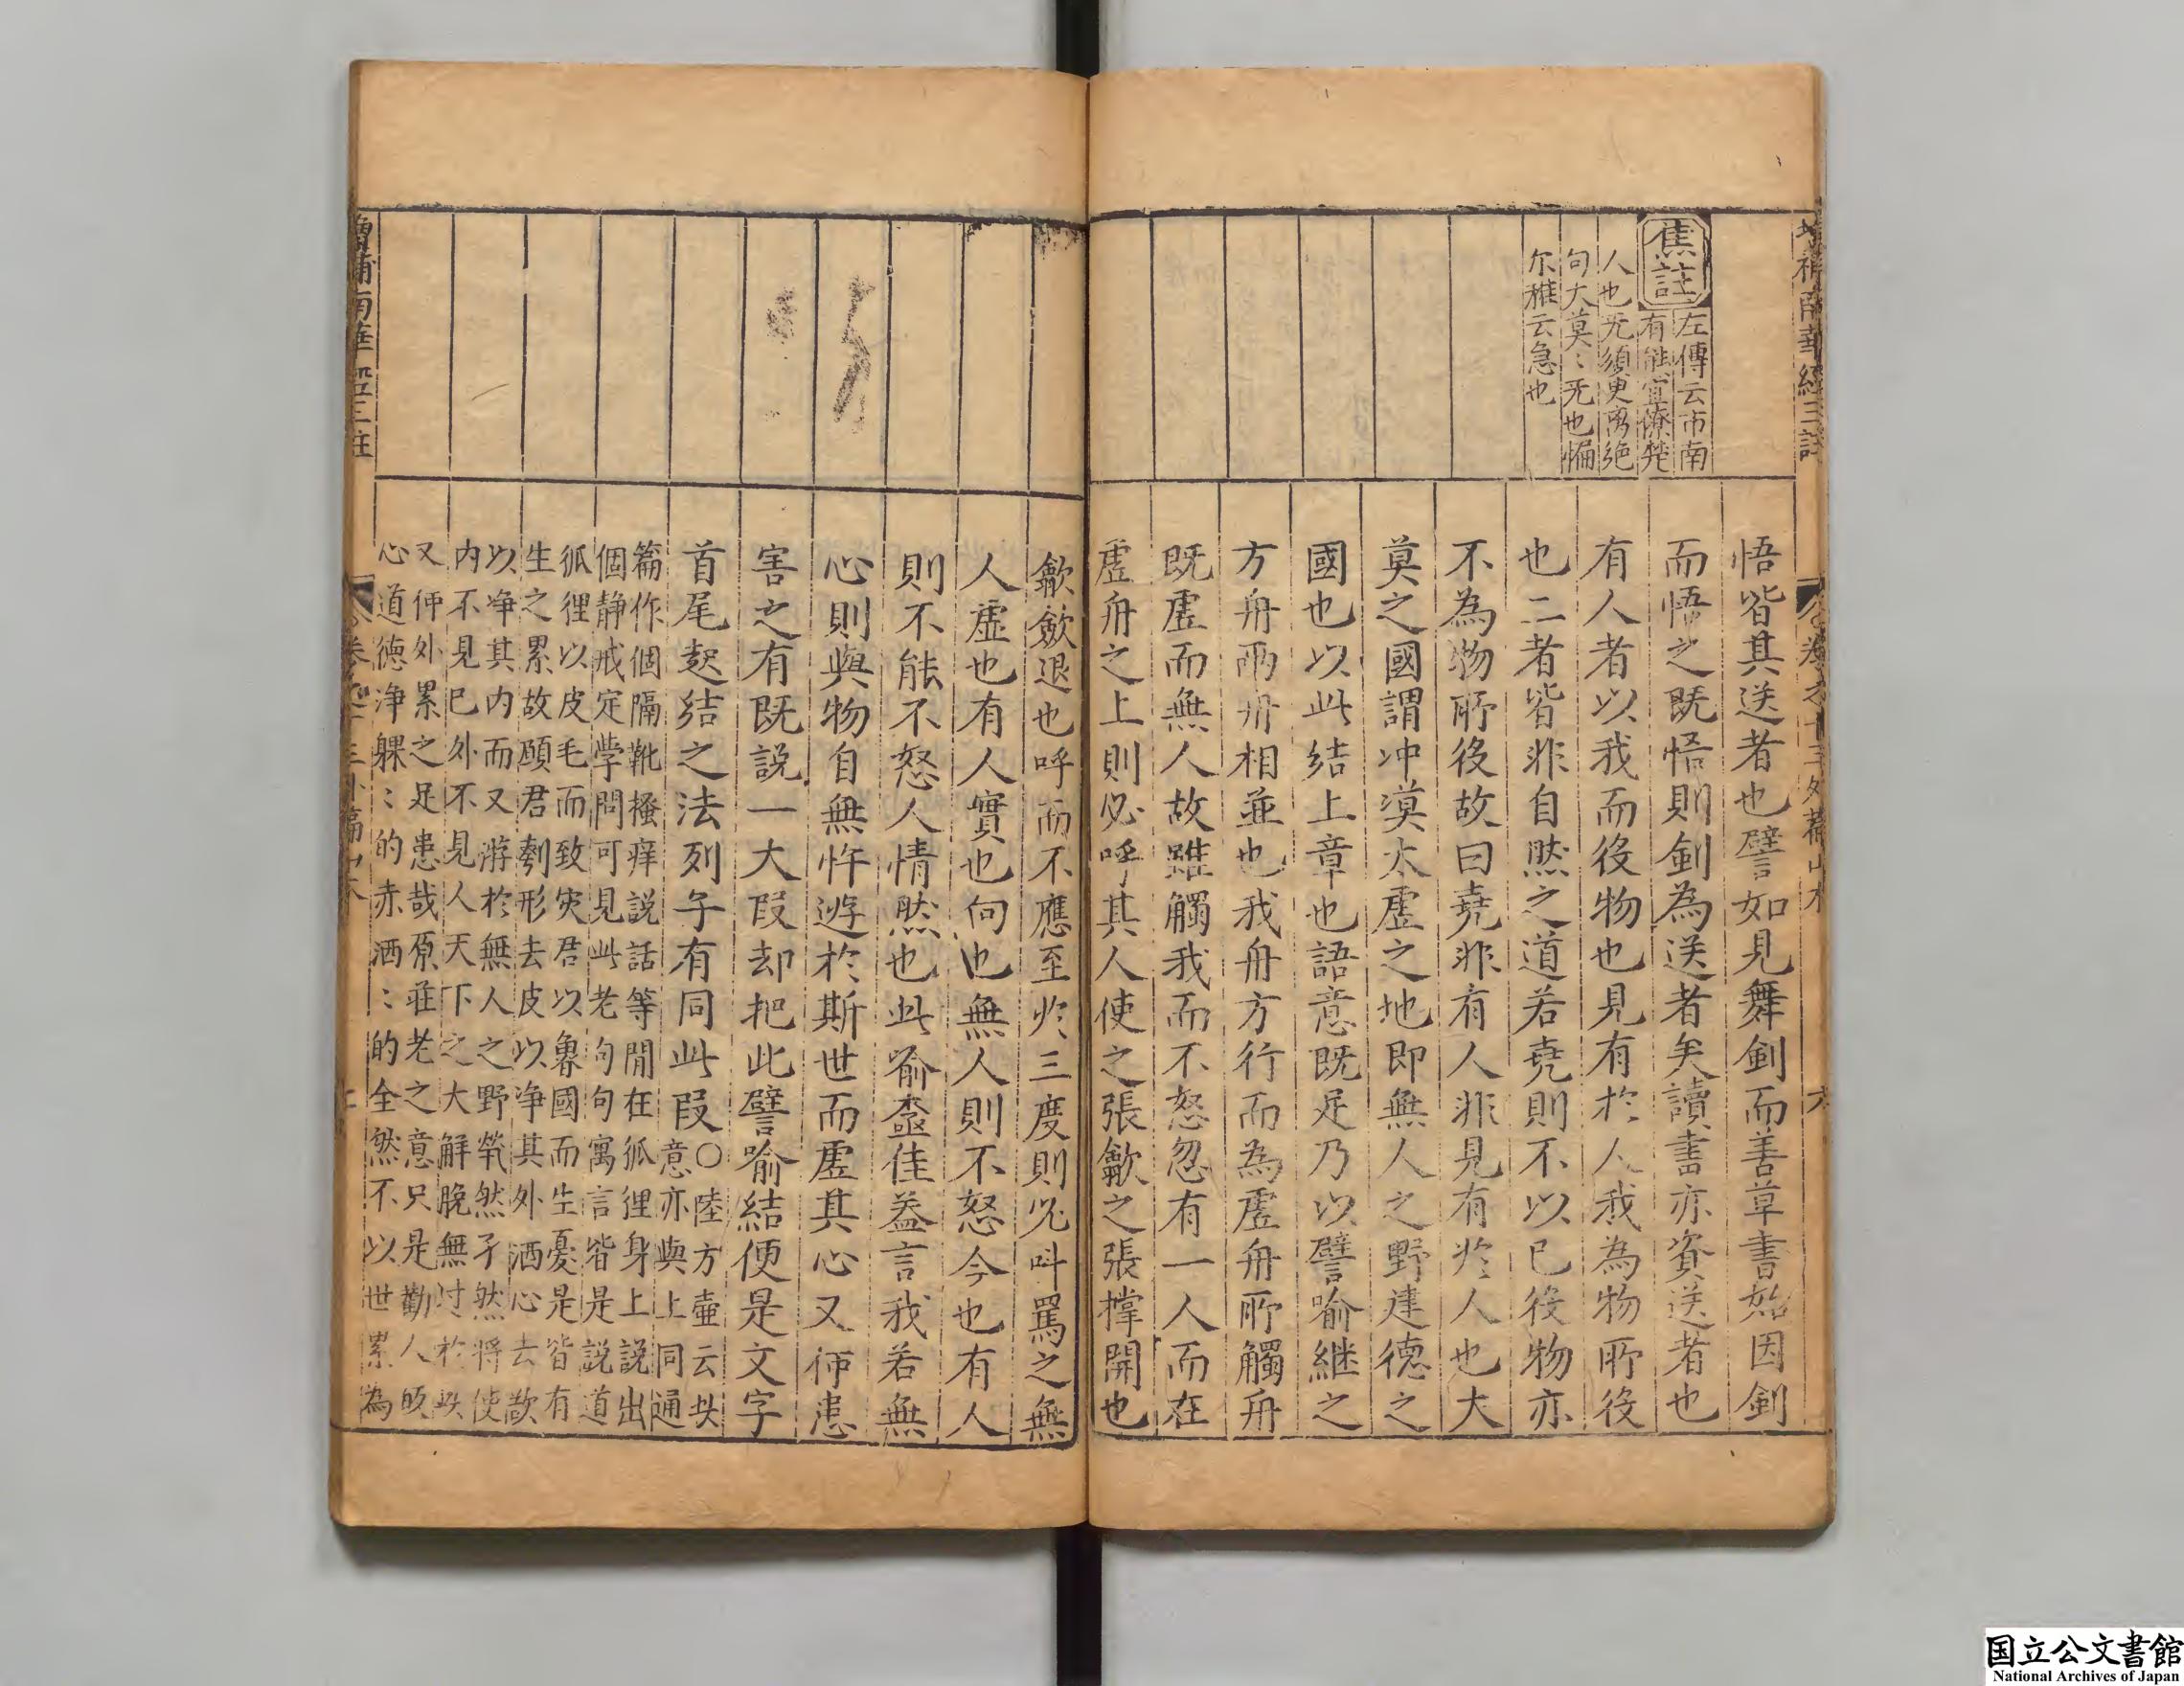 增補南華經三註
卷之十三外篇山木
六
焦註
左傳云市南
有熊宜僚楚
人也无須臾离絶
句大莫〻无也惼
尔雅云急也
悟皆其送者也譬如見舞劍而善草書始因劍
而悟之既悟則劍為送者矣讀書亦資送者也
有人者以我而役物也見有於人我為物所役
也二者皆非自然之道若堯則不以已役物亦
不為物所役故曰堯非有人非見有於人也大
莫之國謂冲漠太虛之地即無人之野建德之
國也以此結上章也語意既足乃以譬喻継之
方舟兩舟相並也我舟方行而為虛舟所觸舟
既虛而無人故雖觸我而不怒忽有一人而在
虛舟之上則必呼其人使之張歙之張撑開也
歙斂退也呼而不應至於三度則兇呌罵之無
人虛也有人實也向也無人則不怒今也有人
則不能不怒人情然也此喻盡佳葢言我若無
心則與物自無忤遊於斯世而虛其心又何患
害之有既説一大叚却把此譬喻結便是文字
首尾起結之法列子有同此叚〇陸方壷云此
意亦與上同通
篇作個隔靴搔痒説話等閒在狐狸身上説出
個静戒定學問可見此老句句寓言皆是説道
狐狸以皮毛而致灾君以魯國而生憂是皆有
生之累故願君刳形去皮以净其外洒心去欲
以净其内而又游於無人之野煢然孑然將使
内不見已外不見人天下之大解脫無过於此
又何外累之足患哉原莊老之意只是勸人皈
心道德净躶〻的赤洒〻的全然不以世累為
增補南華經三註
卷之十三外篇山木